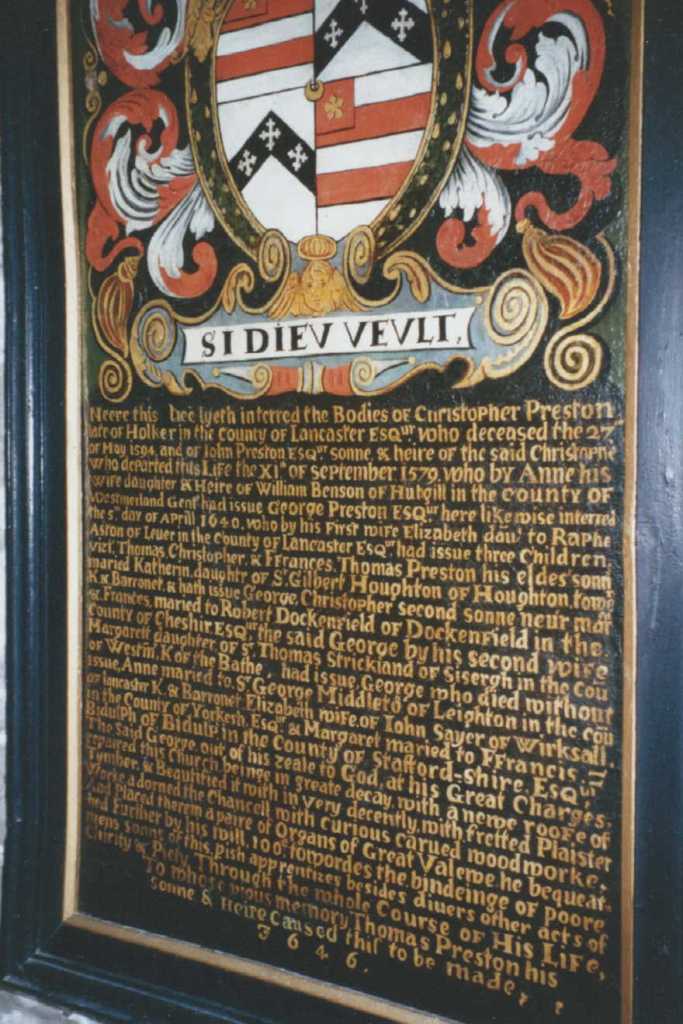 SI DIEV VEVLT,
Heere this lyeth interred the Bodies of Christopher Preston
late of Holker in the County of Lancaster ESQur. who deceased the 27
of May 1594, and of Iohn Preston ESQur sonne, & heire of the said Christophe
who departed this Life the XIth of September 1579, who by Anne his
wife daughter & Heire of William Benson of Hutgill in the county of
Westmerland Gent had issue George Preston ESQur here likewise interred
the 5th day of Aprill 1640. who by his First wife Elizabeth dau to Raphe
Aston of Leuer in the County of Lancaster ESQur had issue three Children
viz, Thomas, Christopher, & Ffrances, Thomas Preston his eldes sonn
maried Katherin, daughter of Sr. Gilbert Houghton of Houghton, towe
K & Barronet, & hath issue George, Christopher second sonne neur mar
& Frances, maried to Robert Dockenfield of Dockenfield in the
County of Cheshir, ESQur the said George by his second wife
Margarett daughter of Sr. Thomas Strickland of Sisergh in the Cou
of Westm, K of the Bathe, had issue George who died without
issue, Anne maried to Sr George Middleto of Leighton in the cou
of lancastr K. & Barronet Elizabeth wife of Iohn Sayer of Wirksall
in the County of Yorkesh, Esqur & Margaret maried to Ffrancis
Bidulph of Bidulp in the County of Stafford-shire, ESQur
The Said George out of his zeale to God, at his Great Charges
repaired this Church beinge in greate decay with a newe roofe of
Tymber, & Beautified it with in very decently, with fretted Plaister
Worke adorned the Chancell with Curious Carued wood worke,
and Placed therein a paire of Organs of Great Valewe he bequeat
hed Further by his will, 100 towordes the bindeinge of poore
mens sonns of this Pish apprentizes besides diuers other acts of
Charity & Piety, Through the whole Course of His Life,
To whose pious memory Thomas Preston his
sonne & Heire Caused this to be made,
1646.